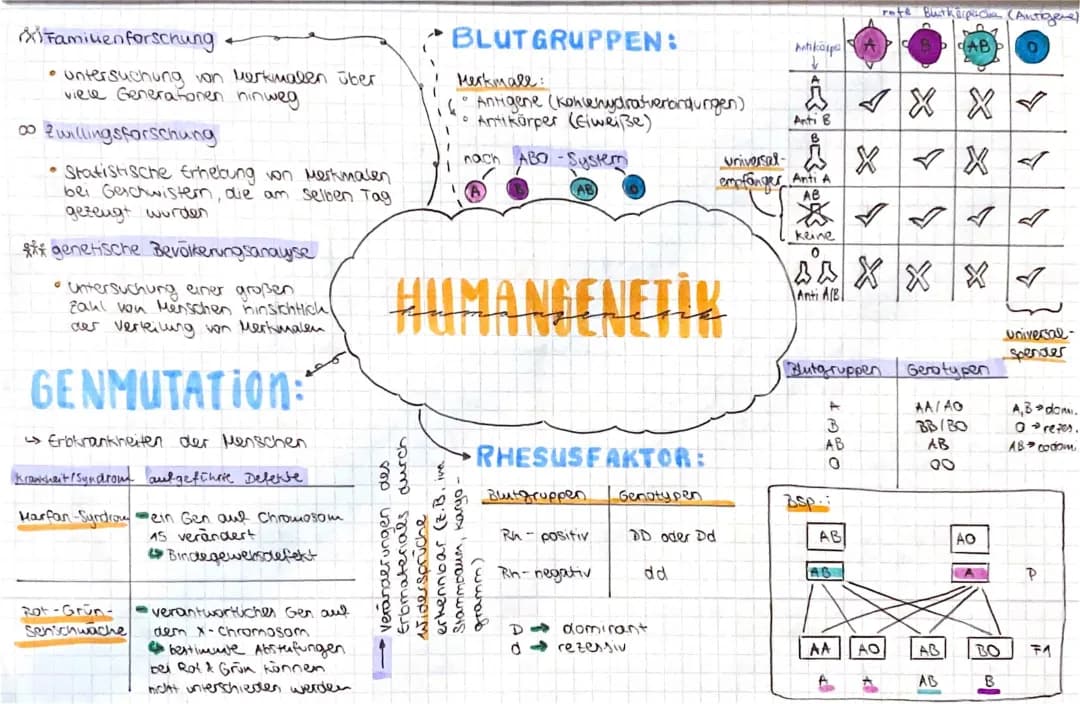 Familienforschung
• Untersuchung von Merkmalen über
viele Generationen hinweg
Zwillingsforschung
• Statistische Erhebung von Merkmalen
bei Geschwistern, die am selben Tag
gezeugt wurden
genetische Bevölkerungsanalyse
• Untersuchung einer großen
Zahl von Menschen hinsichtlich
der Verteilung von Merkmalen
BLUTGRUPPEN:
Merkmale:
° Antigene (Kohlenhydratverbindungen)
° Antikörper (Eiweiße)
nach ABO-System
A B AB O
rote Blutkörperchen (Antigene)
Antikörper
A B AB O
A
Anti B
✓ X X ✓
B
Anti A
X ✓ X ✓
universal-
empfänger
AB
keine
✓ ✓ ✓ ✓
O
Anti A/B
X X X ✓
universal-
spender
HUMANGENETIK
humangenetik
Blutgruppen Genotypen
A AA/AO A,B → domi.
B BB/BO O → rezes.
AB AB AB → codom.
O OO
GENMUTATION:
↳ Erbkrankheiten der Menschen
Krankheit/Syndrom aufgeführte Defekte
Marfan-Syndrom
ein Gen auf Chromosom
15 verändert
↳ Bindegewebsdefekt
Rot-Grün-
Sehschwäche
verantwortliches Gen auf
dem X-Chromosom
↳ bestimmte Abstufungen
bei Rot & Grün können
nicht unterschieden werden
Veränderungen des
Erbmaterials durch
Widersprüche
erkennbar (z.B. im
Stammbaum, Karyo-
gramm)
RHESUSFAKTOR:
Blutgruppen Genotypen
Rh - positiv DD oder Dd
Rh - negativ dd
D → dominant
d → rezessiv
BSP.:
AB AO
AB A P
AA AO AB BO F1
A A AB B